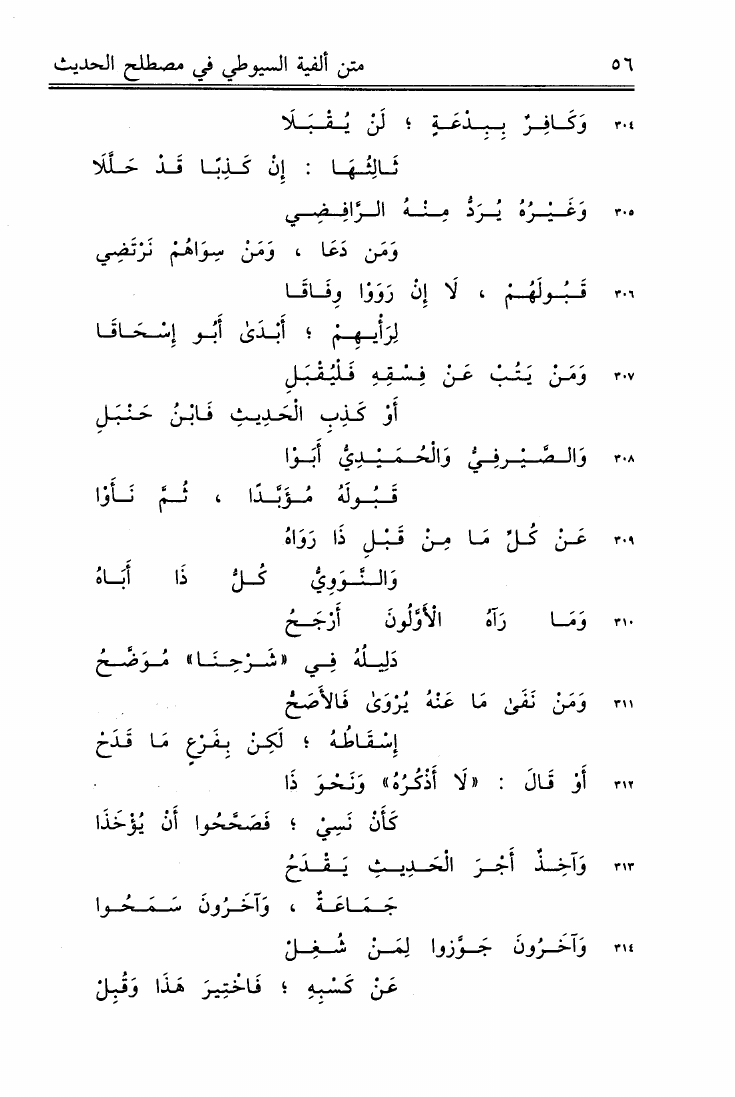 ٥٦ متن ألفية السيوطي في مصطلح الحديث
٣٠٤ وَكَافِرٌ بِبِدْعَةٍ ؛ لَنْ يُقْبَلَا
ثَالِثُهَا : إِنْ كَذِبًا قَدْ حَلَّلَا
٣٠٥ وَغَيْرُهُ يُرَدُّ مِنْهُ الرَّافِضِي
وَمَن دَعَا ، وَمَنْ سِوَاهُمْ نَرْتَضِي
٣٠٦ قَبُولَهُمْ ، لَا إِنْ رَوَوْا وِفَاقَا
لِرَأْيِهِمْ ؛ أَبْدَىٰ أَبُو إِسْحَاقَا
٣٠٧ وَمَنْ يَتُبْ عَنْ فِسْقِهِ فَلْيُقْبَلِ
أَوْ كَذِبِ الْحَدِيثِ فَابْنُ حَنْبَلِ
٣٠٨ وَالصَّيْرَفِيُّ وَالْحُمَيْدِيُّ أَبَوْا
قَبُولَهُ مُؤَبَّدًا ، ثُمَّ نَأَوْا
٣٠٩ عَنْ كُلِّ مَا مِنْ قَبْلِ ذَا رَوَاهُ
وَالنَّوَوِيُّ كُلَّ ذَا أَبَاهُ
٣١٠ وَمَا رَآهُ الْأَوَّلُونَ أَرْجَحُ
دَلِيلُهُ فِي «شَرْحِنَا» مُوَضَّحُ
٣١١ وَمَنْ نَفَىٰ مَا عَنْهُ يُرْوَىٰ فَالأَصَحُّ
إِسْقَاطُهُ ؛ لَكِنْ بِفَرْعٍ مَا قَدَحْ
٣١٢ أَوْ قَالَ : «لَا أَذْكُرُهُ» وَنَحْوَ ذَا
كَأَنْ نَسِيْ ؛ فَصَحَّحُوا أَنْ يُؤْخَذَا
٣١٣ وَآخِذٌ أَجْرَ الْحَدِيثِ يَقْدَحُ
جَمَاعَةٌ ، وَآخَرُونَ سَمَحُوا
٣١٤ وَآخَرُونَ جَوَّزوا لِمَنْ شُغِلْ
عَنْ كَسْبِهِ ؛ فَاخْتِيرَ هَذَا وَقُبِلْ